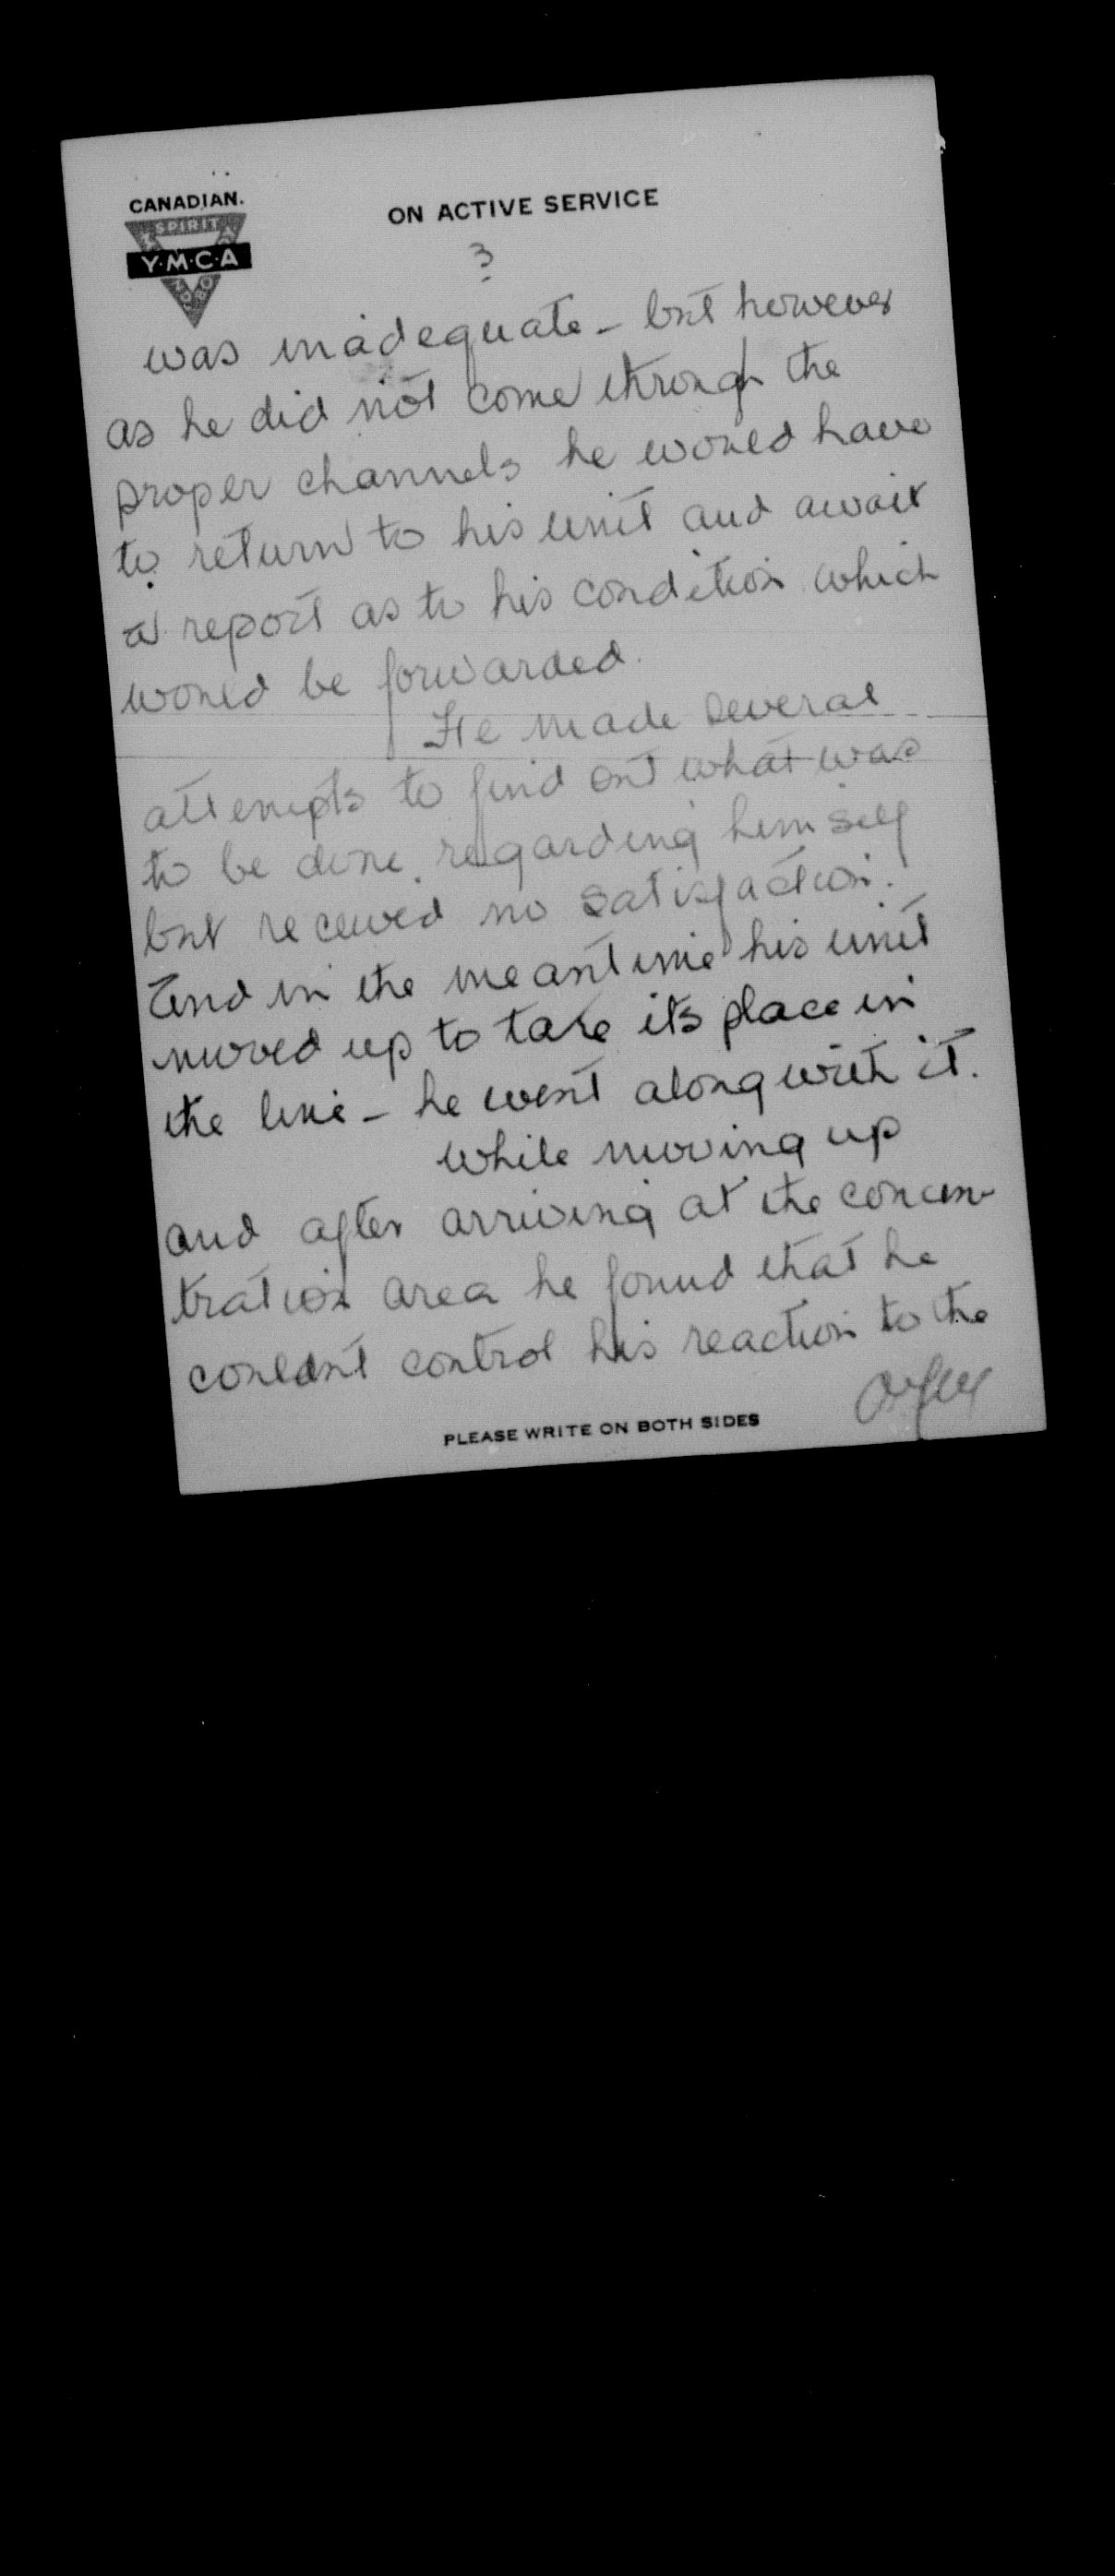 CANADIAN.
ON ACTIVE SERVICE
SPIRIT
Y·M·C·A
3
was inadequate - but however
as he did not come through the
proper channels he would have
to return to his unit and await
a report as to his condition which
would be forwarded.
He made several
attempts to find out what was
to be done regarding himself
but received no satisfaction.
And in the meantime his unit
moved up to take its place in
the line - he went along with it.
While moving up
and after arriving at the concen-
tration area he found that he
couldn't control his reaction to the
PLEASE WRITE ON BOTH SIDES